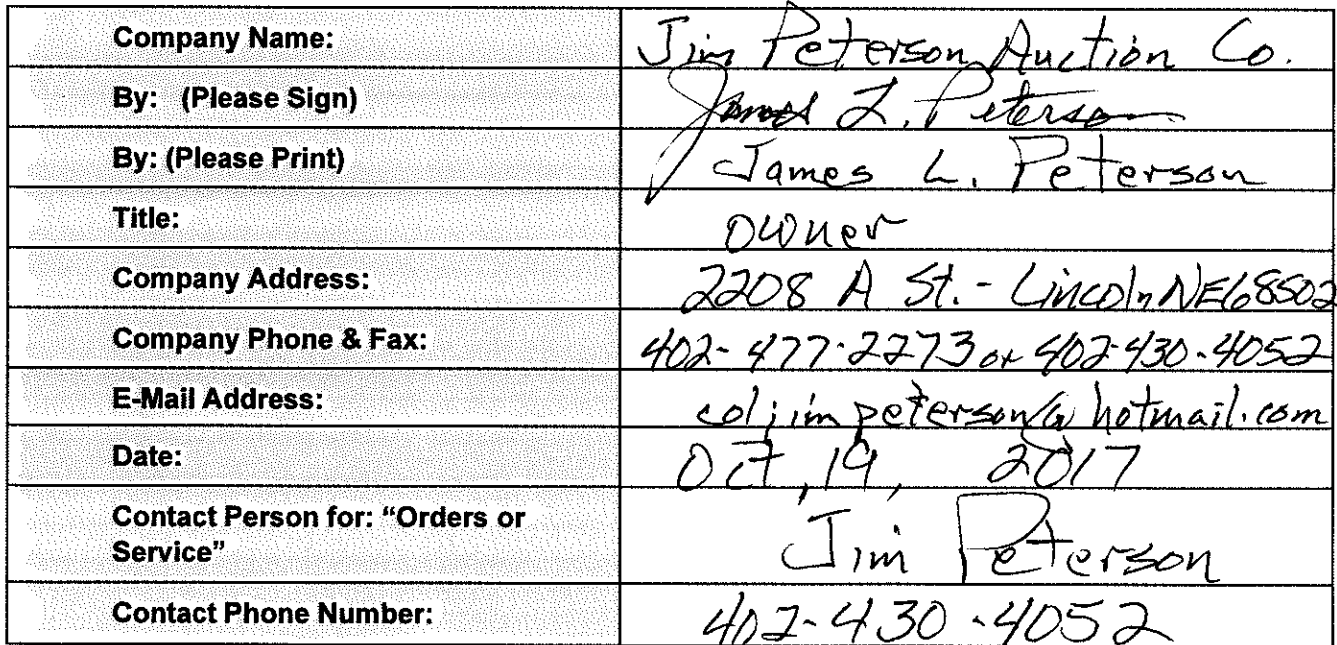 Company Name: Jim Peterson Auction Co.
By: (Please Sign) James L. Peterson
By: (Please Print) James L. Peterson
Title: owner
Company Address: 2208 A St. - Lincoln NE 68502
Company Phone & Fax: 402-477-2273 or 402-430-4052
E-Mail Address: coljimpeterson@hotmail.com
Date: Oct, 19, 2017
Contact Person for: "Orders or
Service" Jim Peterson
Contact Phone Number: 402-430-4052